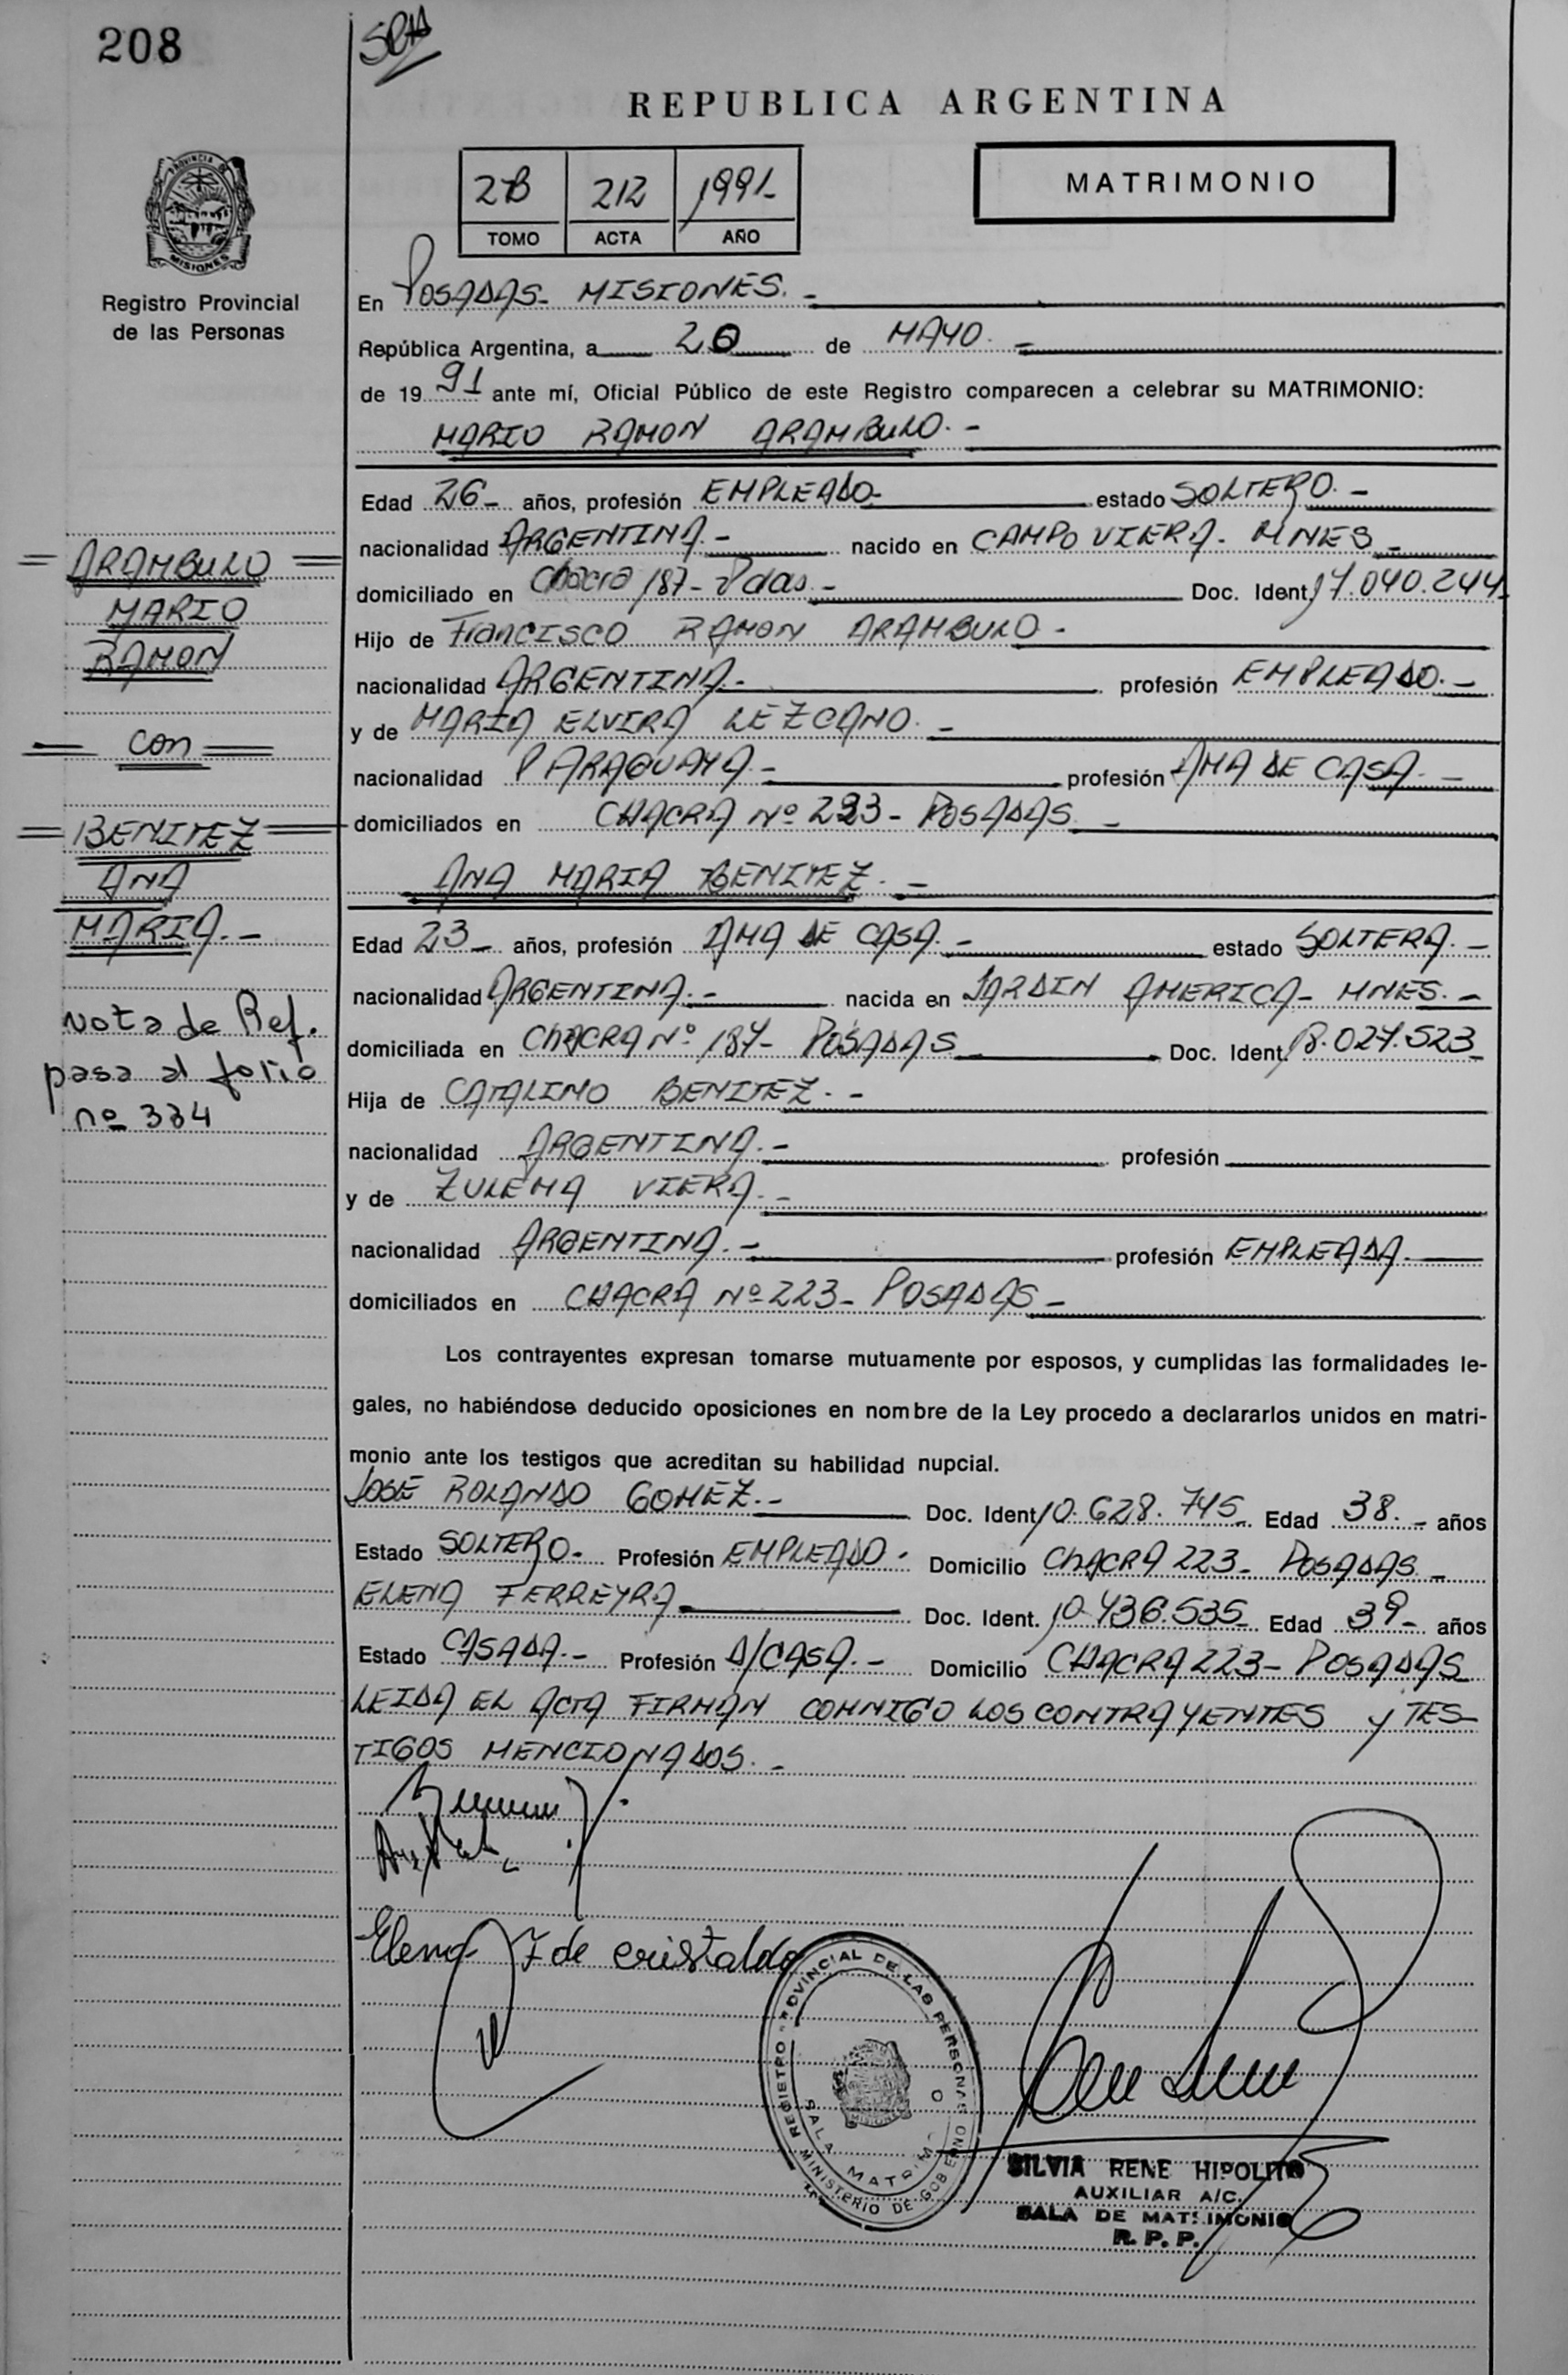 208
SRA
REPUBLICA ARGENTINA
2B 212 1991-
TOMO ACTA AÑO
MATRIMONIO
PROVINCIA DE
MISIONES
Registro Provincial
de las Personas
En POSADAS- MISIONES.-
República Argentina, a 20 de MAYO.-
de 1991 ante mí, Oficial Público de este Registro comparecen a celebrar su MATRIMONIO:
MARIO RAMON ARAMBULO.-
Edad 26- años, profesión EMPLEADO- estado SOLTERO.-
nacionalidad ARGENTINA.- nacido en CAMPO VIERA- MNES-
domiciliado en Chacra 187- Pdas.- Doc. Ident. 17.040.244-
Hijo de Francisco RAMON ARAMBULO-
nacionalidad ARGENTINA- profesión EMPLEADO.-
y de MARIA ELVIRA LEZCANO.-
nacionalidad PARAGUAYA- profesión AMA DE CASA.-
domiciliados en CHACRA Nº 223- POSADAS-
ANA MARIA BENITEZ.-
Edad 23- años, profesión AMA DE CASA.- estado SOLTERA.-
nacionalidad ARGENTINA.- nacida en JARDIN AMERICA- MNES.-
domiciliada en ChACRA Nº 187- POSADAS- Doc. Ident. 18.027.523-
Hija de CATALINO BENITEZ.-
nacionalidad ARGENTINA.- profesión
y de ZULEMA VIERA.-
nacionalidad ARGENTINA.- profesión EMPLEADA.-
domiciliados en CHACRA Nº 223- POSADAS-
Los contrayentes expresan tomarse mutuamente por esposos, y cumplidas las formalidades le-
gales, no habiéndose deducido oposiciones en nombre de la Ley procedo a declararlos unidos en matri-
monio ante los testigos que acreditan su habilidad nupcial.
JOSE ROLANDO GOMEZ.- Doc. Ident. 10.628.745- Edad 38.- años
Estado SOLTERO- Profesión EMPLEADO- Domicilio ChACRA 223- POSADAS-
ELENA FERREYRA Doc. Ident. 10.436.535- Edad 39- años
Estado CASADA.- Profesión A/CASA.- Domicilio CHACRA 223- POSADAS
LEIDA EL ACTA FIRMAN CONMIGO LOS CONTRAYENTES y TES-
TIGOS MENCIONADOS.-
Elena F de cristaldo
=ARAMBULO=
MARIO
RAMON
=con=
=BENITEZ=
ANA
MARIA.-
Nota de Ref.
pasa al folio
nº 334
REGISTRO PROVINCIAL DE LAS PERSONAS
MINISTERIO DE GOBIERNO
SALA MATRIMONIO
MISIONES
SILVIA RENE HIPOLITO
AUXILIAR A/C.
SALA DE MATRIMONIO
R. P. P.